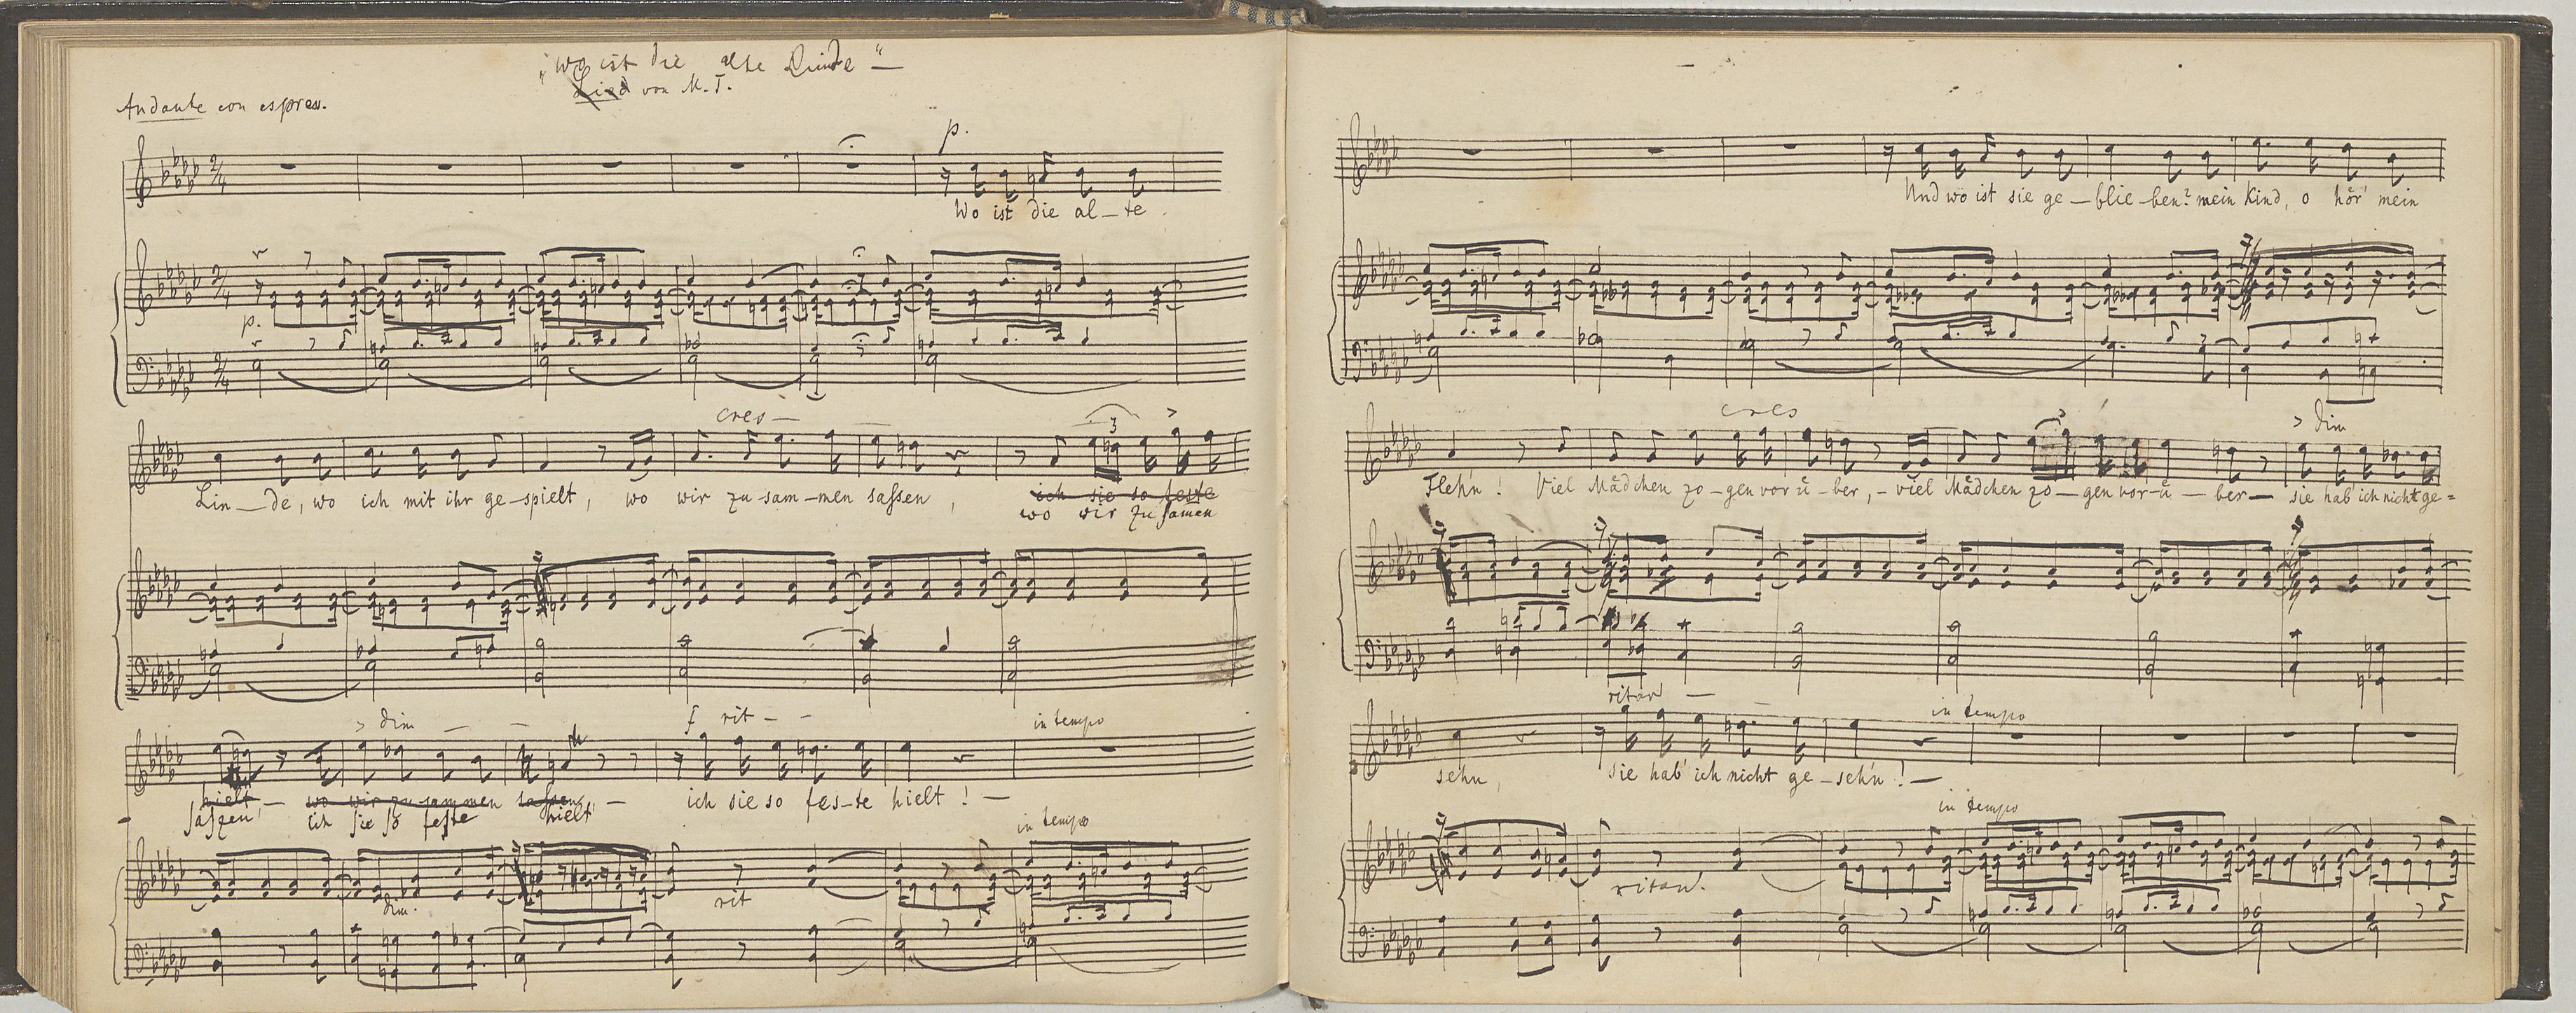 „Wo ist die alte Linde“ —
Lied von M. T.
Andante con espress.
p.
Wo ist die al — te
p.
cres —
3
Lin — de, wo ich mit ihr ge — spielt, wo wir zu — sam — men saßen, ich sie so feste
wo wir zusamen
> dim — — f rit — — in tempo
hielt — wo wir zu sammen sassen, — ich sie so fes — te hielt ! —
saszen, ich sie so feste hielt
in tempo
dim. rit
Und wo ist sie ge — blie — ben? mein Kind, o hör' mein
cres > dim
Flehn! Viel Mädchen zo — gen vor ü — ber, — viel Mädchen zo — gen vor — ü — ber — sie hab' ich nicht ge =
ritar — in tempo
sehn, sie hab' ich nicht ge — sehn! —
in tempo
ritar.